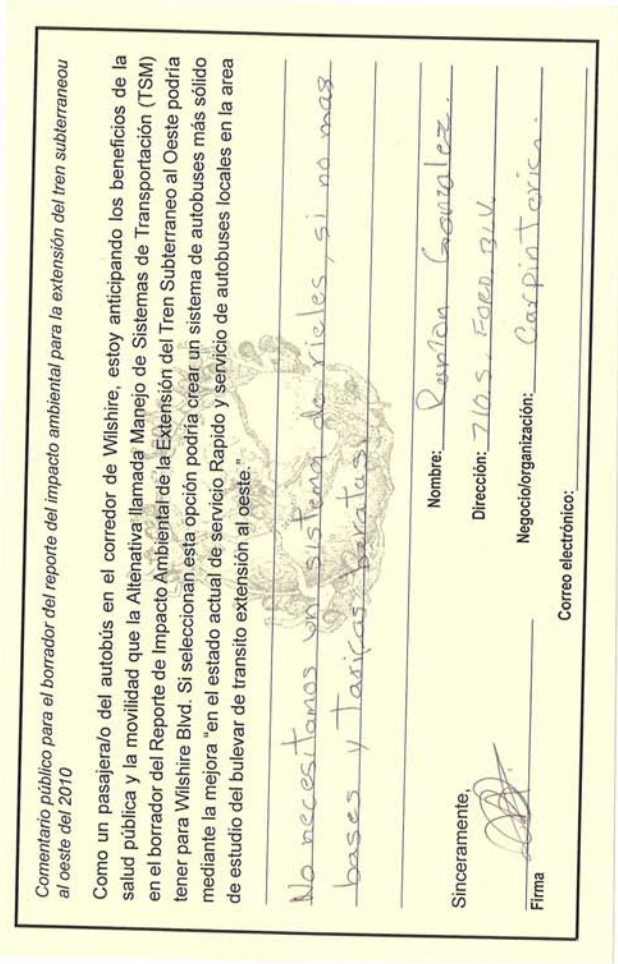 Comentario público para el borrador del reporte del impacto ambiental para la extensión del tren subterraneou
al oeste del 2010
Como un pasajera/o del autobús en el corredor de Wilshire, estoy anticipando los beneficios de la
salud pública y la movilidad que la Altenativa llamada Manejo de Sistemas de Transportación (TSM)
en el borrador del Reporte de Impacto Ambiental de la Extensión del Tren Subterraneo al Oeste podría
tener para Wilshire Blvd. Si seleccionan esta opción podría crear un sistema de autobuses más sólido
mediante la mejora “en el estado actual de servicio Rapido y servicio de autobuses locales en la area
de estudio del bulevar de transito extensión al oeste.”
No necesitamos un sistema de rieles, si no mas
bases y Tarifas baratas.
Sinceramente,
Firma
Nombre: Ramon Gonzalez.
Dirección: 710.S. FORD. BLV.
Negocio/organización: Carpinteria.
Correo electrónico: